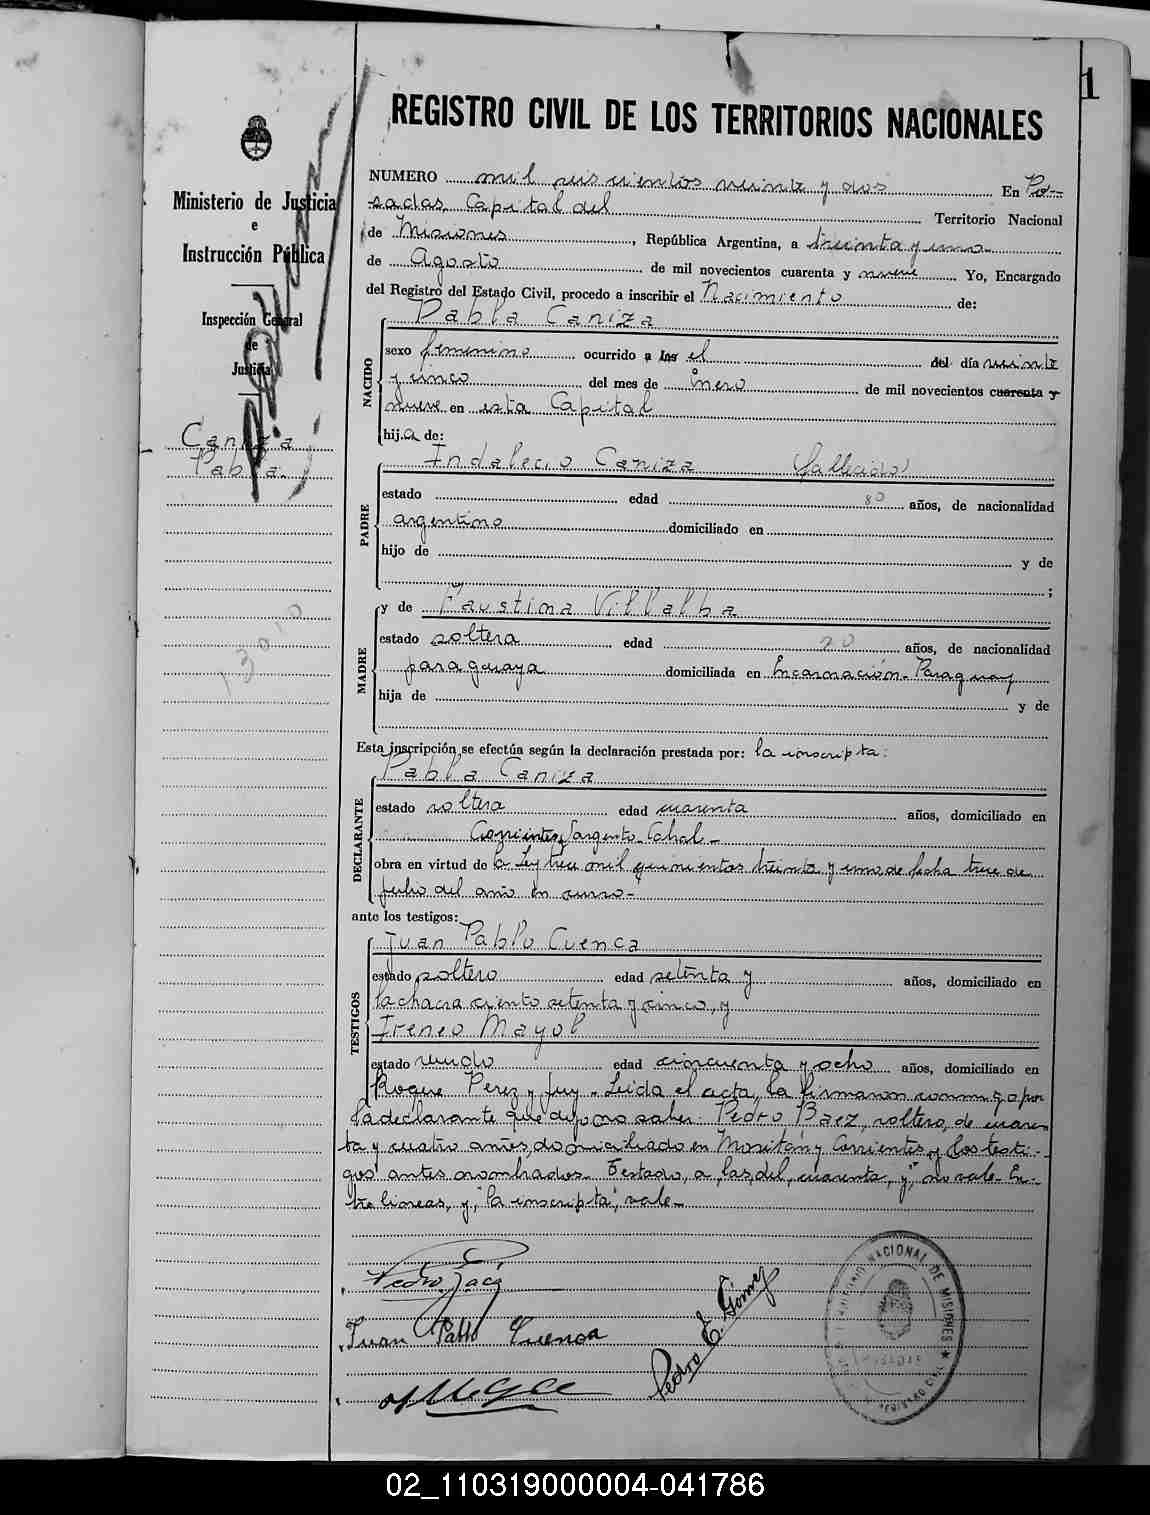 1
REGISTRO CIVIL DE LOS TERRITORIOS NACIONALES
Ministerio de Justicia
e
Instrucción Pública
Inspección General
de
Justicia
Caniza
Pabla.
NUMERO mil seiscientos veinte y dos En Po-
sadas, Capital del Territorio Nacional
de Misiones, República Argentina, a treinta y uno
de Agosto de mil novecientos cuarenta y nueve Yo, Encargado
del Registro del Estado Civil, procedo a inscribir el Nacimiento de:
Pabla Caniza
NACIDO
sexo femenino ocurrido a las el del día veinte
y cinco del mes de Enero de mil novecientos cuarenta y
nueve en esta Capital
hija de:
Indalecio Caniza (fallecido)
PADRE
estado edad 80 años, de nacionalidad
argentino domiciliado en
hijo de y de
;
MADRE
y de Faustina Villalba
estado soltera edad 20 años, de nacionalidad
paraguaya domiciliada en Encarnación-Paraguay
hija de y de
Esta inscripción se efectúa según la declaración prestada por: la inscripta:
Pabla Caniza
DECLARANTE
estado soltera edad cuarenta años, domiciliado en
Corrientes Sargento Cabral-
obra en virtud de la Ley trece mil quinientos treinta y uno de fecha trece de
Julio del año en curso-
ante los testigos:
Juan Pablo Cuenca
TESTIGOS
estado soltero edad setenta y años, domiciliado en
la chacra ciento setenta y cinco, y
Ireneo Mayol
estado viudo edad cincuenta y ocho años, domiciliado en
Roque Perez y Juy. Leida el acta, la firmaron conmigo por
la declarante que dijo no saber: Pedro Baez, soltero, de cuaren-
ta y cuatro años, domiciliado en Corrientes y los testi-
gos antes nombrados. Testado, a, las, del, cuarenta, y, no vale. En-
tre lineas, y, "la inscripta", vale-
Pedro Baez
Juan Pablo Cuenca
Pedro E. Gómez
NACIONAL DE MISIONES
02_110319000004-041786